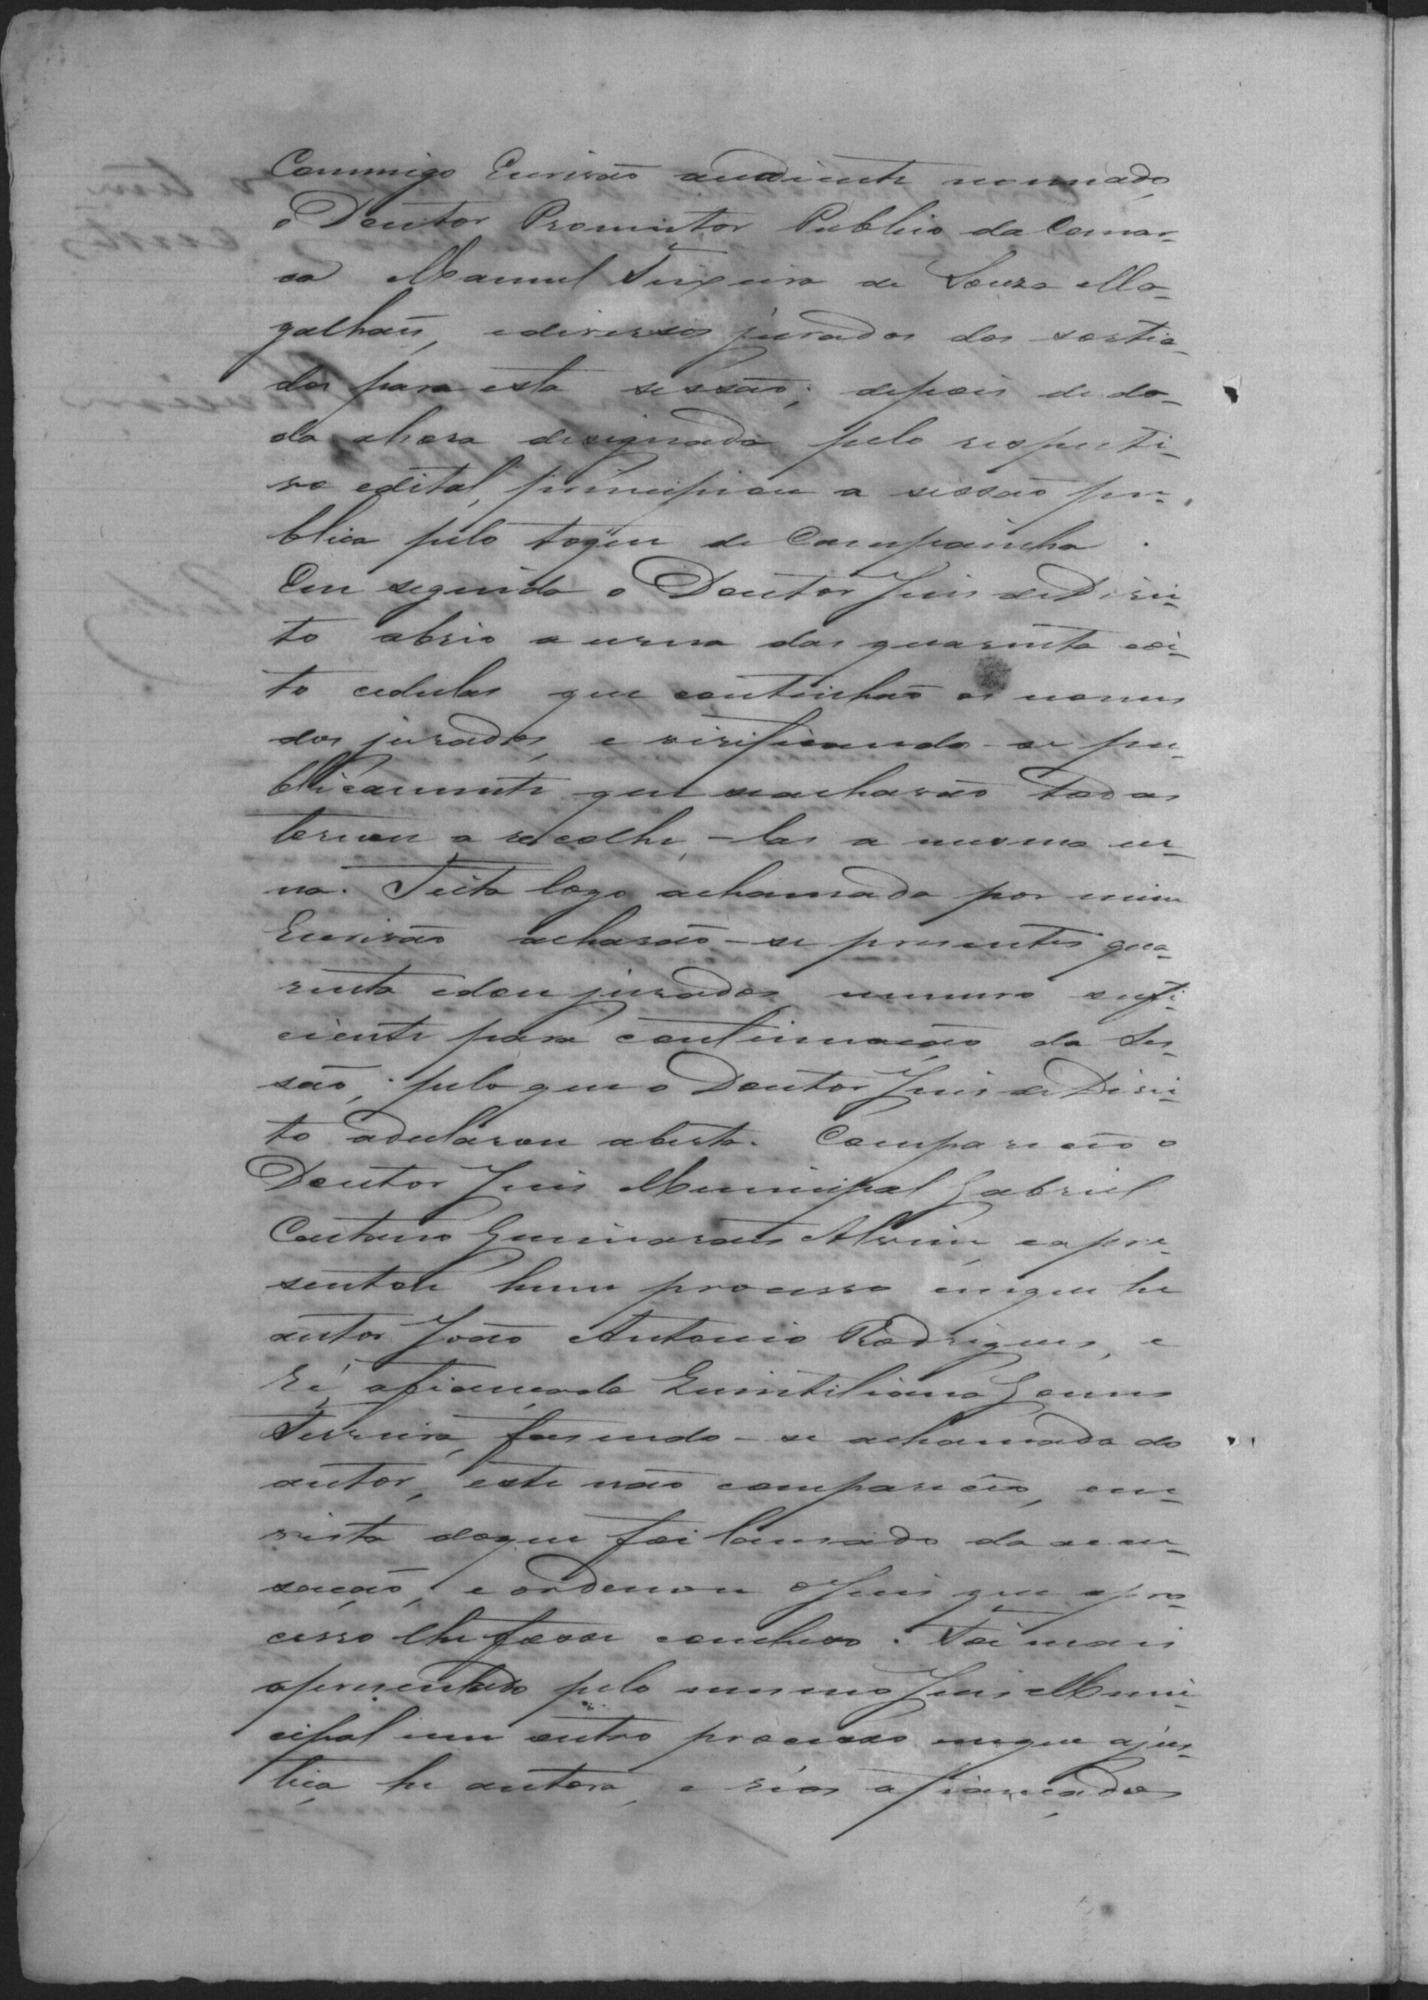 Commigo Escrivão audiente nomeado,
o Doutor Promotor Publico da Comar-
ca Manuel Teixeira de Souza Ma-
galhaẽs, e diversos jurados dos sortia-
dos para esta sessão; depois de da-
da a hora designada pelo respecti-
vo edital, principiou a sessão pu-
blica pelo toque de Campainha.
Em seguida o Doutor Juis de Direi-
to abrio a urna das quarenta e oi-
to cedulas que continhão os nomes
dos jurados, e verificando-se pu-
blicamente que se acharão todas
tornou a recolhe-las a mesma ur-
na. Feita logo a chamada por mim
Escrivão acharão-se presentes qua-
renta e dous jurados numero sufi-
ciente para continuação da Ses-
são, pelo que o Doutor Juis de Direi-
to a declarou aberta. Compareceo o
Doutor Juis Municipal Gabriel
Caetano Guimaraẽs Alvim, e apre-
sentou hum processo em que he
autor João Antonio Rodrigues, e
Ré afiançada Quintiliana Gomes
Ferreira, fasendo-se a chamada do
autor, este não compareceo, em
vista do que foi lançado da acu-
sação, e ordenou o Juis que o pro-
cesso lhe fosse concluso. Foi mais
apresentado pelo mesmo Juis Muni-
cipal um outro processo em que a jus-
tiça he autora, e réos afiançados